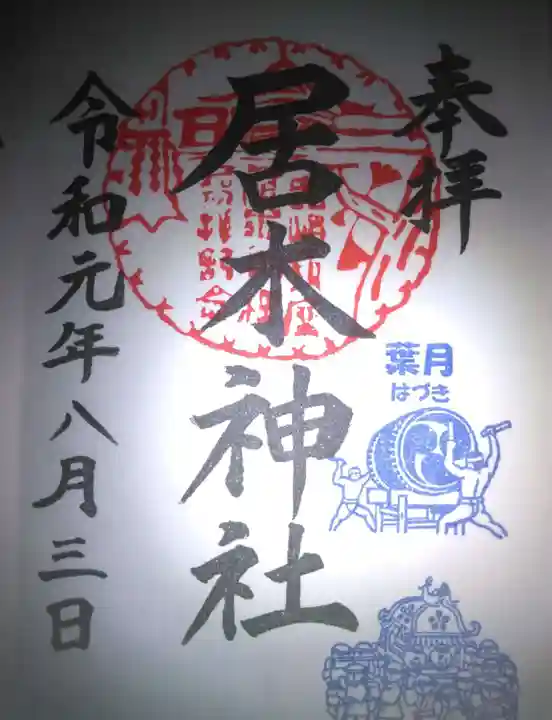 奉拝
居木神社
令和元年八月三日
葉月
はづき